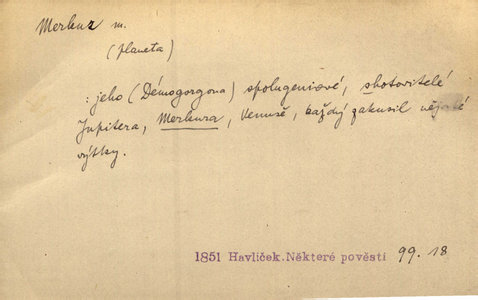 Merkur m.
(planeta)
: jeho (Démogorgona) spolugeniové, zhotovitelé
Jupitera, Merkura, Venuše, každý zakusil nějaké
výtky.
1851 Havlíček.Některé pověsti 99.18